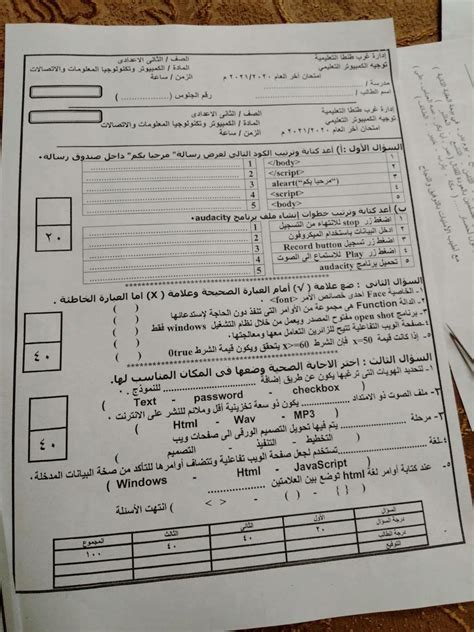 إدارة غرب طنطا التعليمية
توجيه الكمبيوتر التعليمي
امتحان آخر العام ٢٠٢٠/ ٢٠٢١م
الصف / الثانى الاعدادى
المادة / الكمبيوتر وتكنولوجيا المعلومات والاتصالات
الزمن / ساعة
مدرسة /
اسم الطالب /
رقم الجلوس (..............)
إدارة غرب طنطا التعليمية
توجيه الكمبيوتر التعليمي
امتحان آخر العام ٢٠٢٠/ ٢٠٢١م
الصف / الثانى الاعدادى
المادة / الكمبيوتر وتكنولوجيا المعلومات والاتصالات
الزمن / ساعة
السؤال الأول :أ) أعد كتابة وترتيب الكود التالي لعرض رسالة" مرحبا بكم" داخل صندوق رسالة.
١ </body> 1
٢ </script> 2
٣ aleart("مرحبا بكم") 3
٤ <script> 4
٥ <body> 5
ب) أعد كتابة وترتيب خطوات إنشاء ملف برنامج audacity.
١ اضغط زر stop للانتهاء من التسجيل 1
٢ ادخل البيانات باستخدام الميكروفون 2
٣ اضغط زر تسجيل Record button 3
٤ اضغط زر Play للاستماع الى الصوت 4
٥ تحميل برنامج audacity 5
٢٠
السؤال الثانى : ضع علامة (√) أمام العبارة الصحيحة وعلامة (X) أما العبارة الخاطئة .
١- الخاصية Face احدى خصائص الأمر <font> ( )
٢- الدالة Function هى مجموعة من الأوامر التى تنفذ دون الحاجة لإستدعائها ( )
٣- برنامج open shot مفتوح المصدر ويعمل من خلال نظام التشغيل windows فقط ( )
٤- صفحة الويب التفاعلية تتيح للزائرين التعامل معها ومعالجتها. ( )
٥- إذا كانت قيمة x=50 فإن الشرط x>=60 يتحقق ويكون قيمة الشرط 0true ( )
٤٠
السؤال الثالث : اختر الاجابة الصحية وضعها فى المكان المناسب لها.
١- لتحديد الهويات التى ترغبها يكون عن طريق إضافة .............. للنموذج .
( Text - password - checkbox )
٢- ملف الصوت ذو الامتداد .............. يكون ذو سعة تخزينية أقل وملائم للنشر على الانترنت .
( Html - Wav - MP3 )
٣- مرحلة .............. يتم فيها تحويل التصميم الورقى الى صفحات ويب
( التخطيط - التنفيذ - التصميم )
٤- لغة .............. تستخدم لجعل صفحة الويب تفاعلية وتتضاف أوامرها للتأكد من صخة البيانات المدخلة .
( Windows - Html - JavaScript )
٥- عند كتابة أوامر لغة html توضع بين العلامتين ..............
( < > - ( ) - { } )
٤٠
انتهت الأسئلة
السؤال الأول الثانى الثالث المجموع
درجة السؤال ٢٠ ٤٠ ٤٠ ١٠٠
درجة الطالب
التوقيع